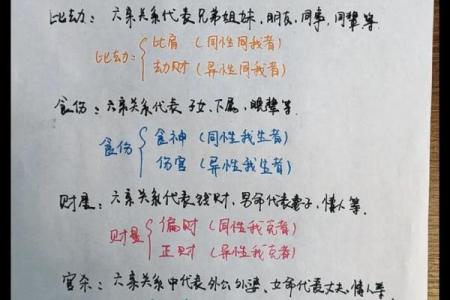 比劫：六亲关系代表兄弟姐妹，朋友，同事，同辈等.
比劫：{比肩（同性同我者）
劫财（异性同我者）
食伤：六亲关系代表子女、下属，晚辈等.
食伤{食神（同性我生者）
伤官（异性我生者）
财星：六亲关系代表钱财，男命代表妻子，情人等.
财星{偏财（同性我克者）
正财（异性我克者）
官杀：六亲关系中代表外公外婆、女命代表丈夫、情人等